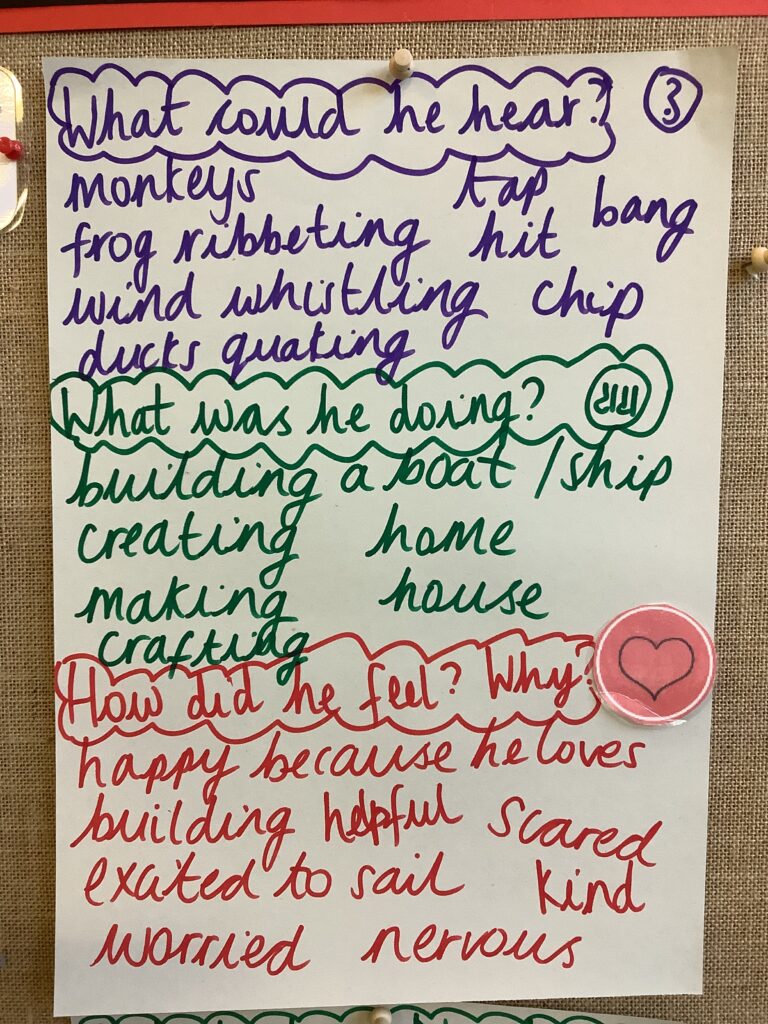 What could he hear?
monkeys tap bang
frog ribbeting hit
wind whistling chip
ducks quaking
What was he doing?
building a boat / ship
creating home
making house
crafting
How did he feel? Why?
happy because he loves
building helpful scared
exated to sail kind
worried nervous